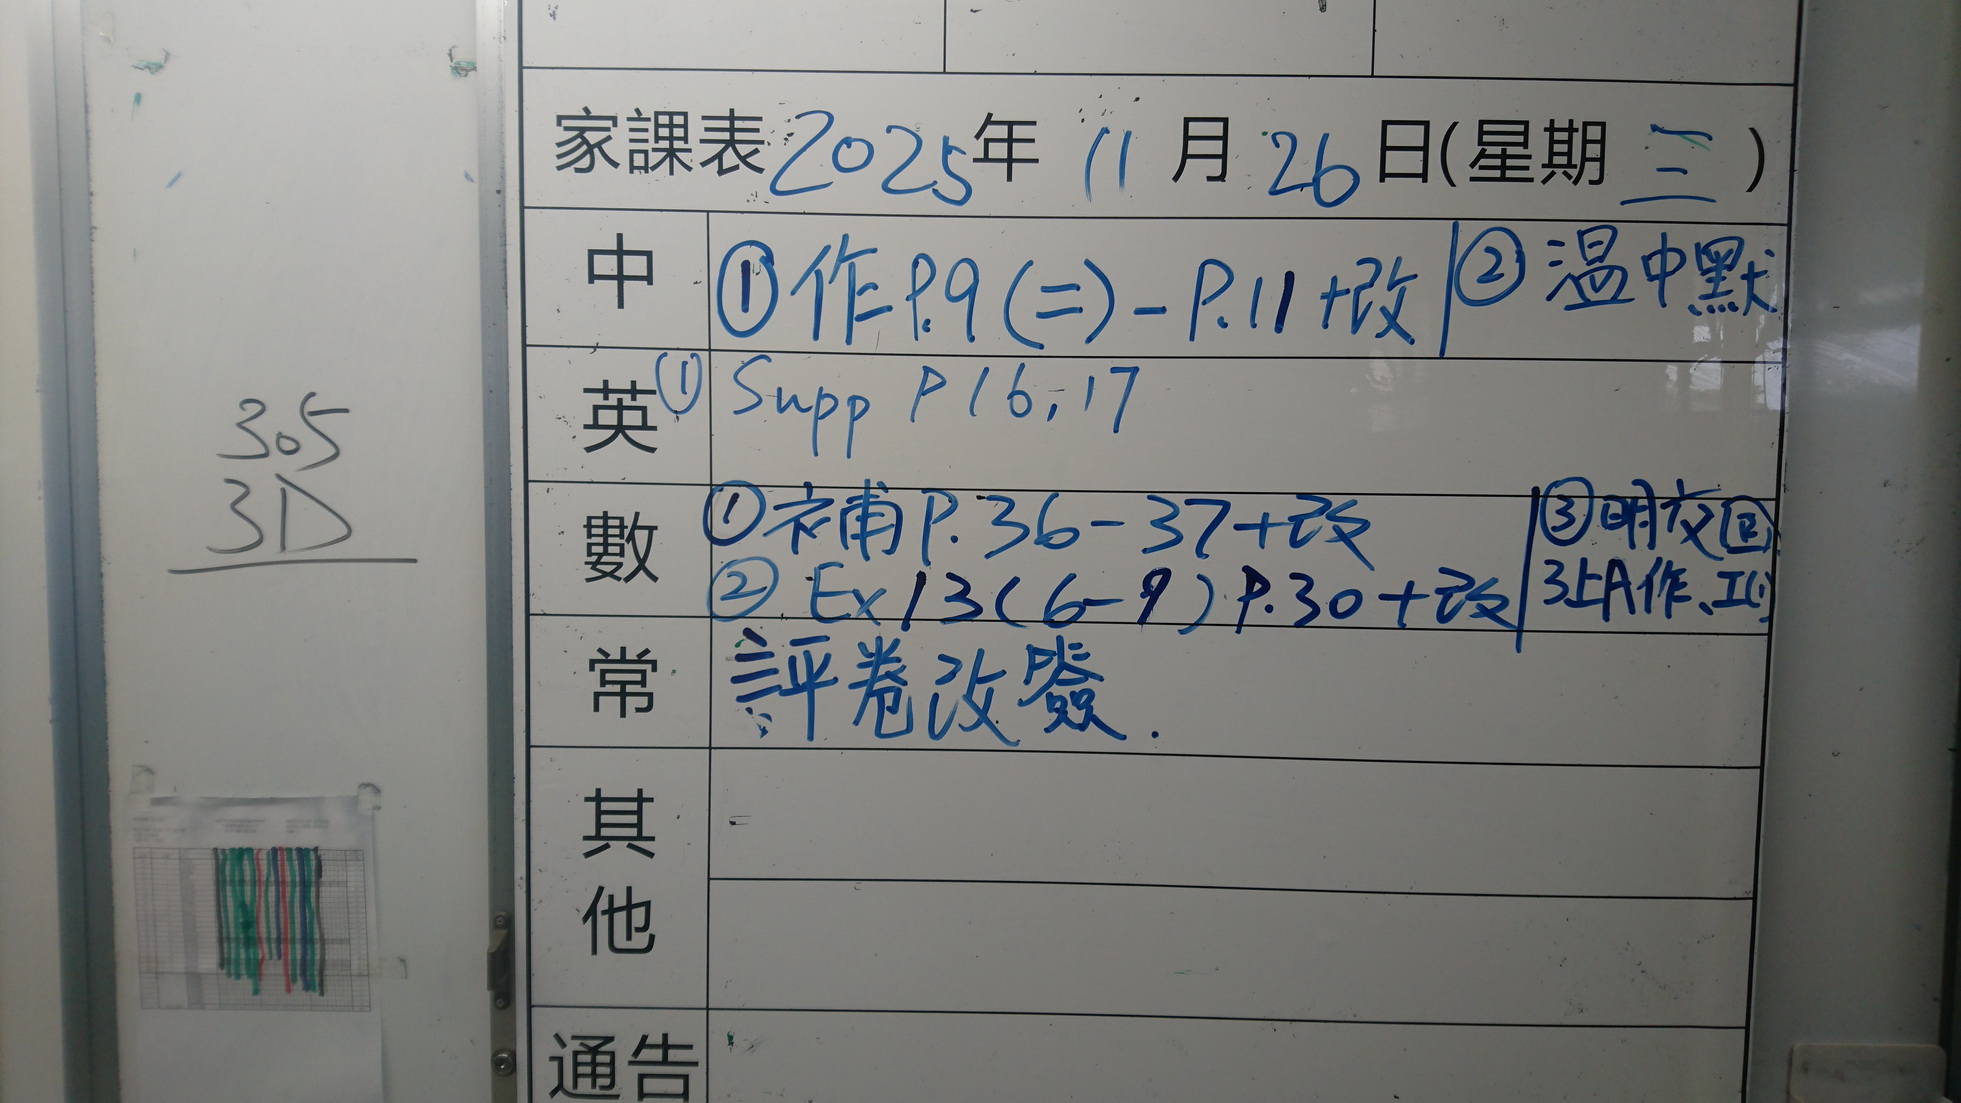 家課表 2025年 11 月 26 日(星期 三 )
中 ① 作 P.9 (二) - P.11 +改 ② 溫中默
英 ① Supp P 16, 17
數 ① 補 P.36-37+改
② Ex 13 (6-9) P.30 + 改
③ 明交回
3上A作、工
常 評卷改簽.
其他
通告
305
3D